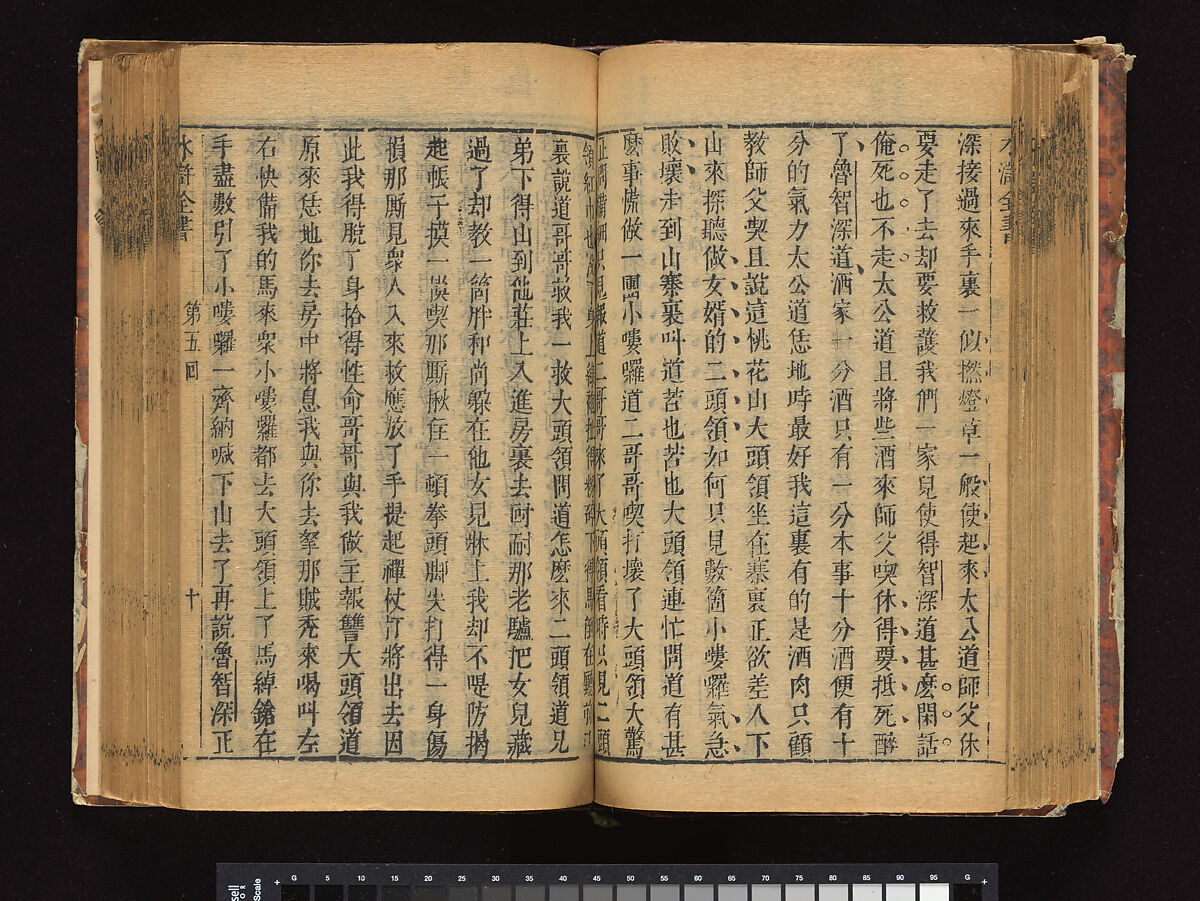 水滸全書
深接過來手裏一似撚燈草一般使起來太公道師父休
要走了去却要救護我們一家兒使得智深道甚麽閑話
俺死也不走太公道且將些酒來師父喫休得要抵死醉
了魯智深道洒家一分酒只有一分本事十分酒便有十
分的氣力太公道恁地時最好我這裏有的是酒肉只顧
教師父喫且說這桃花山大頭領坐在寨裏正欲差人下
山來探聽做女婿的二頭領如何只見數箇小嘍囉氣急
敗壞走到山寨裏叫道苦也苦也大頭領連忙問道有甚
麽事慌做一團小嘍囉道二哥哥喫打壞了大頭領大驚
正問備細只見報道二哥哥來了大頭領看時只見二頭
領紅巾也沒了身上綠袍扯得粉碎下得馬倒在廳前口
裏說道哥哥救我一救大頭領問道怎麽來二頭領道兄
弟下得山到他莊上入進房裏去叵耐那老驢把女兒藏
過了却教一箇胖和尚躲在他女兒牀上我却不隄防揭
起帳子摸一摸喫那厮揪住一頓拳頭脚尖打得一身傷
損那厮見衆人入來救應放了手提起禪杖打將出去因
此我得脫了身拾得性命哥哥與我做主報讐大頭領道
原來恁地你去房中將息我與你去拏那賊禿來喝叫左
右快備我的馬來衆小嘍囉都去大頭領上了馬綽鎗在
手盡數引了小嘍囉一齊納喊下山去了再說魯智深正
水滸全書 第五回 十
G 5 10 15 20 25 30 35 40 45 50 55 60 65 70 75 80 85 90 95 G
Scale